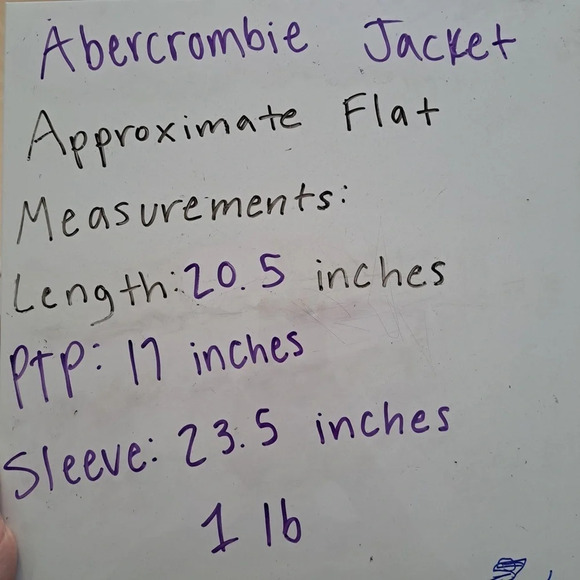 Abercrombie Jacket
Approximate Flat
Measurements:
Length: 20.5 inches
PTP: 17 inches
Sleeve: 23.5 inches
1 lb